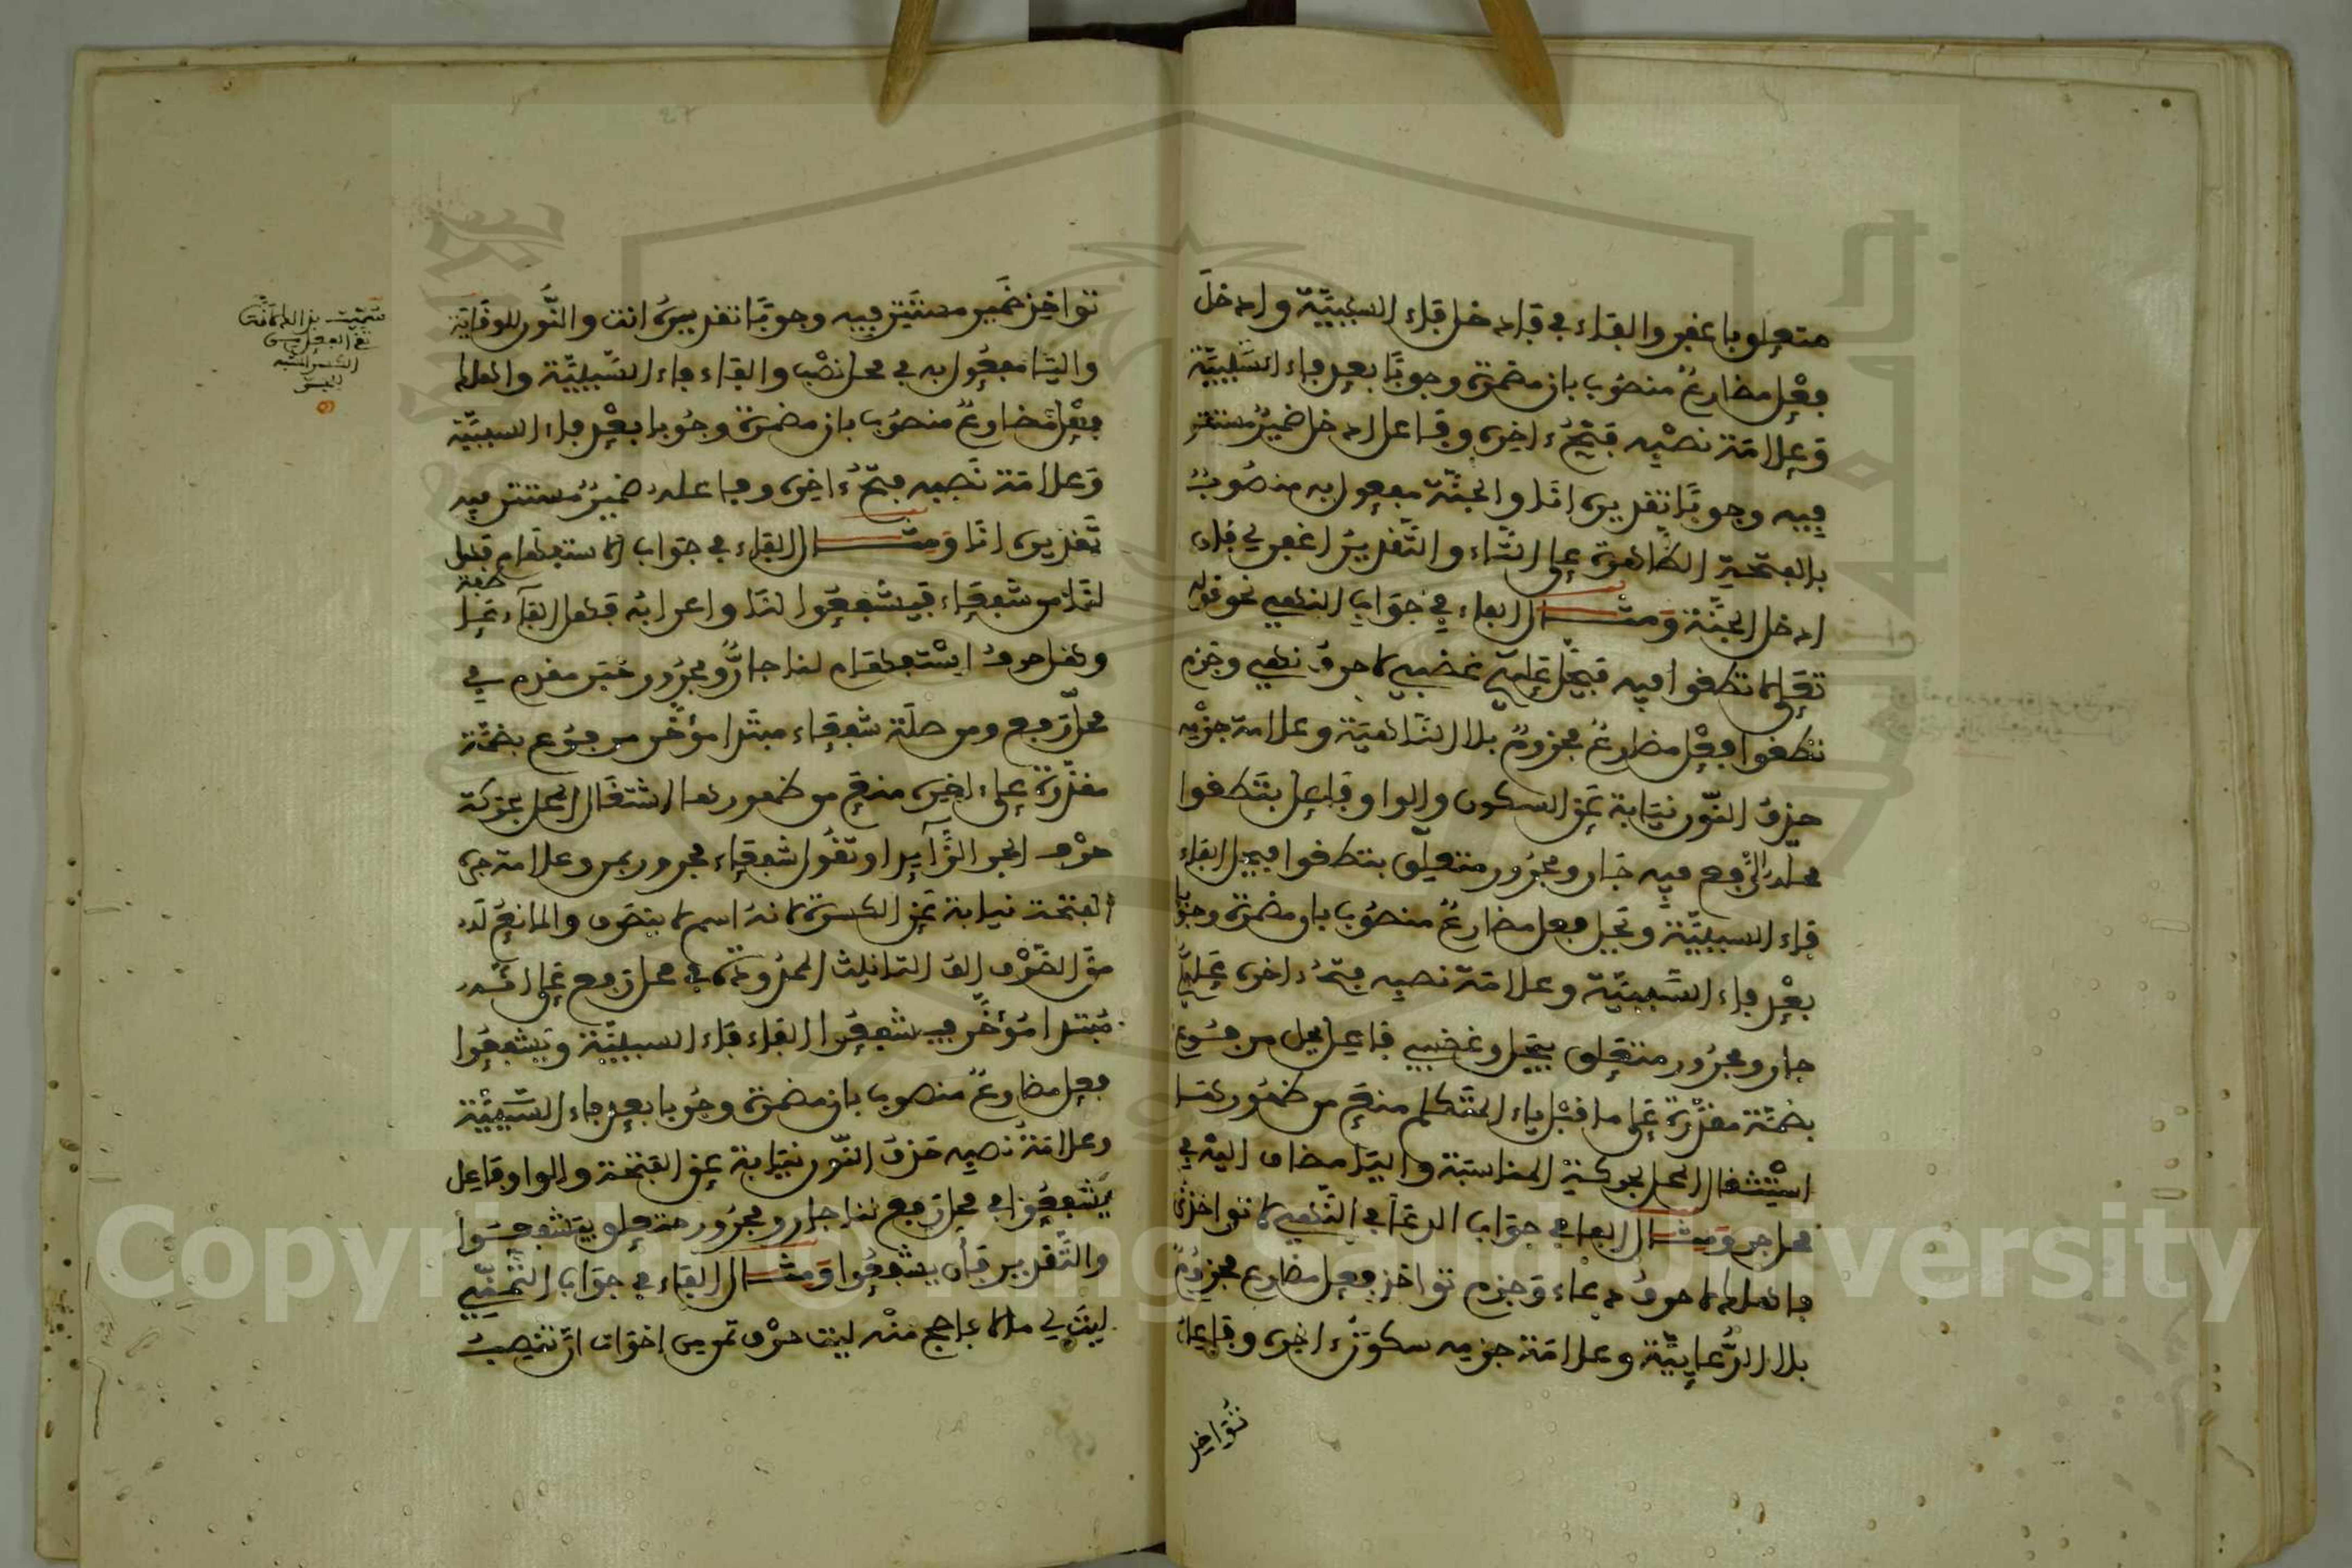 متعلق باغفر والفاء في فادخل فاء السببيّة وادخلَ
فعْل مضارعٌ منصُوب بان مضمرة وجوبًا بعد فاء السَّببيّة
وَعلامَة نصْبه فتْحُ ءاخره وفاعل ادخل ضميرٌ مستتر
فيه وجوبًا تقديره انَا والجنّة مفعول به منصُوبٌ
بالفتحة الظاهرة على التّاء والتّقديرُ اغفر لي فان
ادخل الجنّة وَمثـــال الفاء في جوَاب النهي نحو قوله
تعَلى لا تطغوا فيه فيحلَّ عليْكم غضبي لا حرفُ نهي وجزم
تطغوا فعْل مضارعٌ مجزومٌ بلا النّاهيَة وعلامة جزْمه
حذفُ النّون نيَابة عَن السكون والواو فاعل بتَطغوا
محله الرّفع فيه جَار ومجرُور متعلق بتطغوا فيحل الفاء
فاء السببيَّة ويَحل فعل مضارعٌ منصُوب بان مضمرة وجوبا
بعْد فاء السَّببيّة وعلامَة نصبه فتحُ ءاخره عَليْكم
جار ومجرُور متعَلق بيَحل وغضبي فاعل يحل مرفُوع
بضمَّة مقدّرة عَلى ما قبْل ياء المتَكلم منعَ من ظهُورهَا
اشْتغال المحل بحركة المناسَبة واليَا مضاف اليْه في
محل جر وَمثـــال الفا في جوَاب الدعَا في النّهي لا تواخذني
فاهلك لا حرفُ دعاء وَجزم تواخذ فعل مضارع مجزومٌ
بلا الدُّعايّة وعلامَة جزمه سكونُ ءاخره وفاعل
تُؤَاخذ
تواخذ ضَمير مستَتر فيه وجوبًا تقديرهُ انت والنُّون للوقَاية
واليَا مفعُول به في محل نصْب والفاء فاء السّببيّة واهلك
فعْل مُضارعٌ منصُوب بان مضمرة وجُوبا بعْد فاء السببيّة
وَعلامَة نَصبه فتحُ ءاخره وفاعله ضميرٌ مستتر فيه
تَقديره انَا وَمثـــال الفاء في جوَاب الاستفهام فهل
لنَا من شفعَاء فيَشفعُوا لنَا واعرابُه فهل الفاء عَاطفة
وهل حرفُ اسْتفهَام لنا جارٌّ ومجرُور خبَر مقدم في
محل رَفع ومن صلَة شفعَاء مبتَدا مؤخّر مرفوع بضمّة
مقدّرة على ءاخره منعَ من ظهورها اشتغَال المحل بحركة
حرْف الجر الزَّآيد او تقُول شفعَاء مجرور بمن وعلامة جره
الفتحة نيابة عَن الكسرة لانهُ اسم لا ينصَرف والمانعُ لَه
منَ الصّرْف الفُ التانيث الممدُودة في محل رفع عَلى انه
مُبتدا مُؤخّر فيشفعُوا الفاء فَاء السببيّة ويَشفعُوا
فعل مضارعٌ منصوب بان مضمرة وجُوبا بعد فاء السَّببيّة
وعلامَةُ نصبه حَذفُ النّون نيَابة عن الفتحَة والواو فاعل
يَشفعُوا في محل رَفع لنا جار ومجرُور متعلق بيَشفعُوا
والتَّقدير فأن يشفعُوا وَمثـــال الفاء في جوَاب التّمنّي
ليْت لي مالا فاحج منْه ليت حرْف تَمن من اخوَات انّ تنصبُ